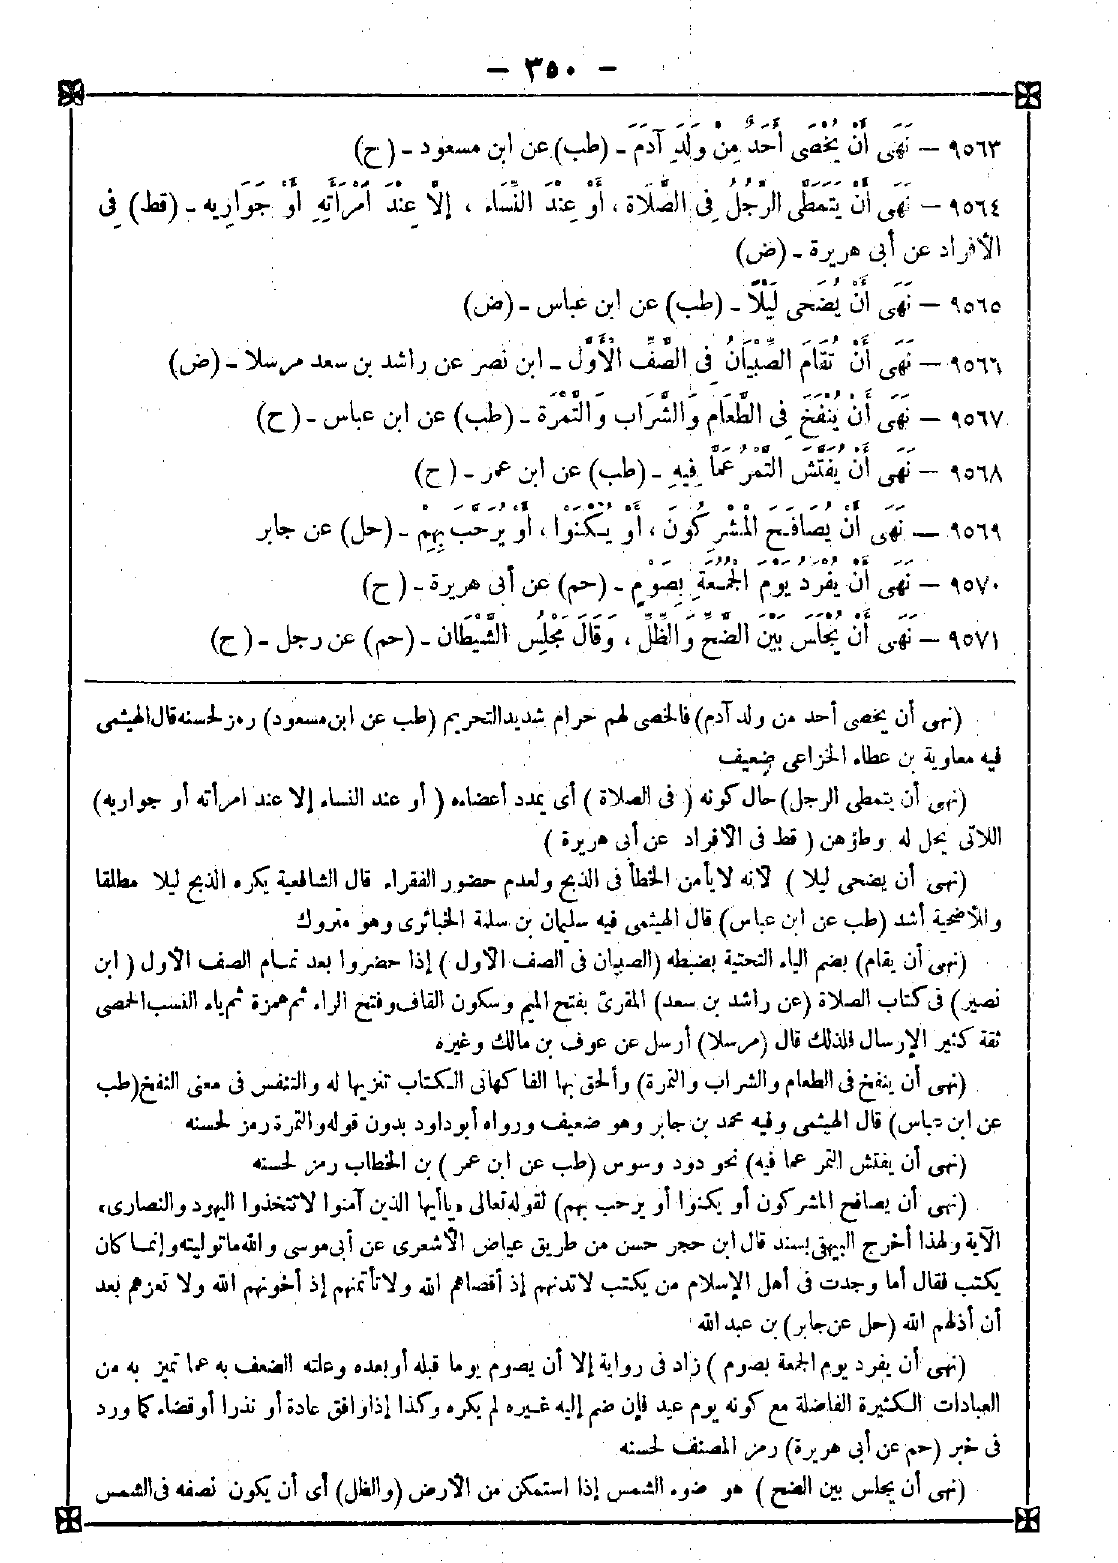 - ٣٥٠ -
٩٥٦٣ - نَهَى أَنْ يُخْصَى أَحَدٌ مِنْ وَلَدِ آدَمَ - (طب) عن ابن مسعود - (ح)
٩٥٦٤ - نَهَى أَنْ يَتَمَطَّى الرَّجُلُ فِى الصَّلَاةِ ، أَوْ عِنْدَ النِّسَاءِ ، إلَّا عِنْدَ امْرَأَتِهِ أَوْ جَوَارِيهِ - (قط) فِى
الأفراد عن أبى هريرة - (ض)
٩٥٦٥ - نَهَى أَنْ يُضَحَى لَيْلًا - (طب) عن ابن عباس - (ض)
٩٥٦٦ - نَهَى أَنْ تُقَامَ الصِّبْيَانُ فِى الصَّفِّ الْأَوَّلِ - ابن نصر عن راشد بن سعد مرسلا - (ض)
٩٥٦٧ - نَهَى أَنْ يُنْفَخَ فِى الطَّعَامِ وَالشَّرَابِ وَالتَّمْرَةِ - (طب) عن ابن عباس - (ح)
٩٥٦٨ - نَهَى أَنْ يُفَتَّشَ التَّمْرُ عَمَّا فِيهِ - (طب) عن ابن عمر - (ح)
٩٥٦٩ - نَهَى أَنْ يُصَافَحَ الْمُشْرِكُونَ ، أَوْ يُكْنَوْا ، أَوْ يُرَحَّبَ بِهِمْ - (حل) عن جابر
٩٥٧٠ - نَهَى أَنْ يُفْرَدَ يَوْمُ الْجُمُعَةِ بِصَوْمٍ - (حم) عن أبى هريرة - (ح)
٩٥٧١ - نَهَى أَنْ يُجْلَسَ بَيْنَ الضَّحِّ وَالظِّلِّ ، وَقَالَ مَجْلِسُ الشَّيْطَانِ - (حم) عن رجل - (ح)
(نهى أن يخصى أحد من ولد آدم) فالخصى لهم حرام شديد التحريم (طب عن ابن مسعود) رمز لحسنه قال الهيثمى
فيه معاوية بن عطاء الخزاعى ضعيف
(نهى أن يتمطى الرجل) حال كونه (فى الصلاة) أى يمدد أعضاءه (أو عند النساء إلا عند امرأته أو جواريه)
اللاتى يحل له وطؤهن (قط فى الأفراد عن أبى هريرة)
(نهى أن يضحى ليلا) لأنه لا يأمن الخطأ فى الذبح ولعدم حضور الفقراء قال الشافعية يكره الذبح ليلا مطلقا
وللأضحية أشد (طب عن ابن عباس) قال الهيثمى فيه سليمان بن سلمة الخبائرى وهو متروك
(نهى أن يقام) بضم الياء التحتية بضبطه (الصبيان فى الصف الأول) إذا حضروا بعد تمام الصف الأول (ابن
نصير) فى كتاب الصلاة (عن راشد بن سعد) المقرئ بفتح الميم وسكون القاف وفتح الراء ثم همزة ثم ياء النسب الحمصى
ثقة كثير الإرسال فلذلك قال (مرسلا) أرسل عن عوف بن مالك وغيره
(نهى أن ينفخ فى الطعام والشراب والتمرة) وألحق بها الفاكهانى الكتاب تنزيها له والتنفس فى معنى النفخ (طب
عن ابن عباس) قال الهيثمى وفيه محمد بن جابر وهو ضعيف ورواه أبو داود بدون قوله والتمرة رمز لحسنه
(نهى أن يفتش التمر عما فيه) نحو دود وسوس (طب عن ابن عمر) بن الخطاب رمز لحسنه
(نهى أن يصافح المشركون أو يكنوا أو يرحب بهم) لقوله تعالى «يا أيها الذين آمنوا لا تتخذوا اليهود والنصارى»
الآية ولهذا أخرج البيهقى بسند قال ابن حجر حسن من طريق عياض الأشعرى عن أبى موسى والله ما توليته وإنما كان
يكتب فقال أما وجدت فى أهل الإسلام من يكتب لا تدنهم إذ أقصاهم الله ولا تأتمنهم إذ أخونهم الله ولا تعزهم بعد
أن أذلهم الله (حل عن جابر) بن عبد الله
(نهى أن يفرد يوم الجمعة بصوم) زاد فى رواية إلا أن يصوم يوما قبله أو بعده وعلته الضعف به عما تميز به من
العبادات الكثيرة الفاضلة مع كونه يوم عيد فإن ضم إليه غيره لم يكره وكذا إذا وافق عادة أو نذرا أو قضاء كما ورد
فى خبر (حم عن أبى هريرة) رمز المصنف لحسنه
(نهى أن يجلس بين الضح) هو ضوء الشمس إذا استمكن من الأرض (والظل) أى أن يكون نصفه فى الشمس